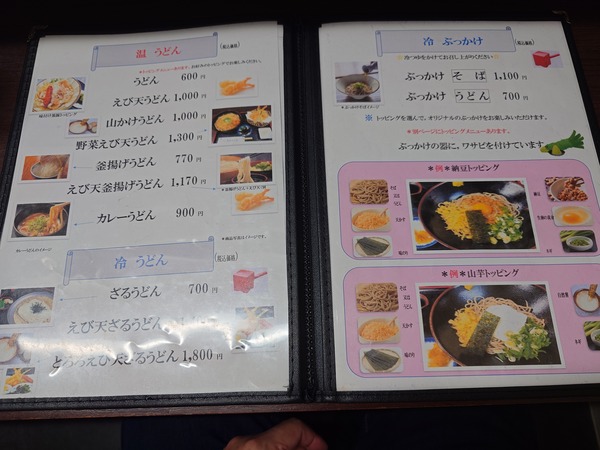 温 うどん (税込価格)
うどん 600円
えび天うどん 1,000円
山かけうどん 1,000円
野菜えび天うどん 1,300円
釜揚げうどん 770円
えび天釜揚げうどん 1,170円
カレーうどん 900円
冷 うどん (税込価格)
ざるうどん 700円
えび天ざるうどん
とろろえび天ざるうどん 1,800円
冷 ぶっかけ (税込価格)
冷つゆをかけてお召し上がりください
ぶっかけ そば 1,100円
ぶっかけ うどん 700円
※ トッピングを選んで、オリジナルのぶっかけをお楽しみいただけます。
＊別ページにトッピングメニューあります。
ぶっかけの器に、ワサビを付けています
＊例＊納豆トッピング
そば
又は
うどん
天かす
納豆
ネギ
＊例＊山芋トッピング
そば
又は
うどん
天かす
ネギ